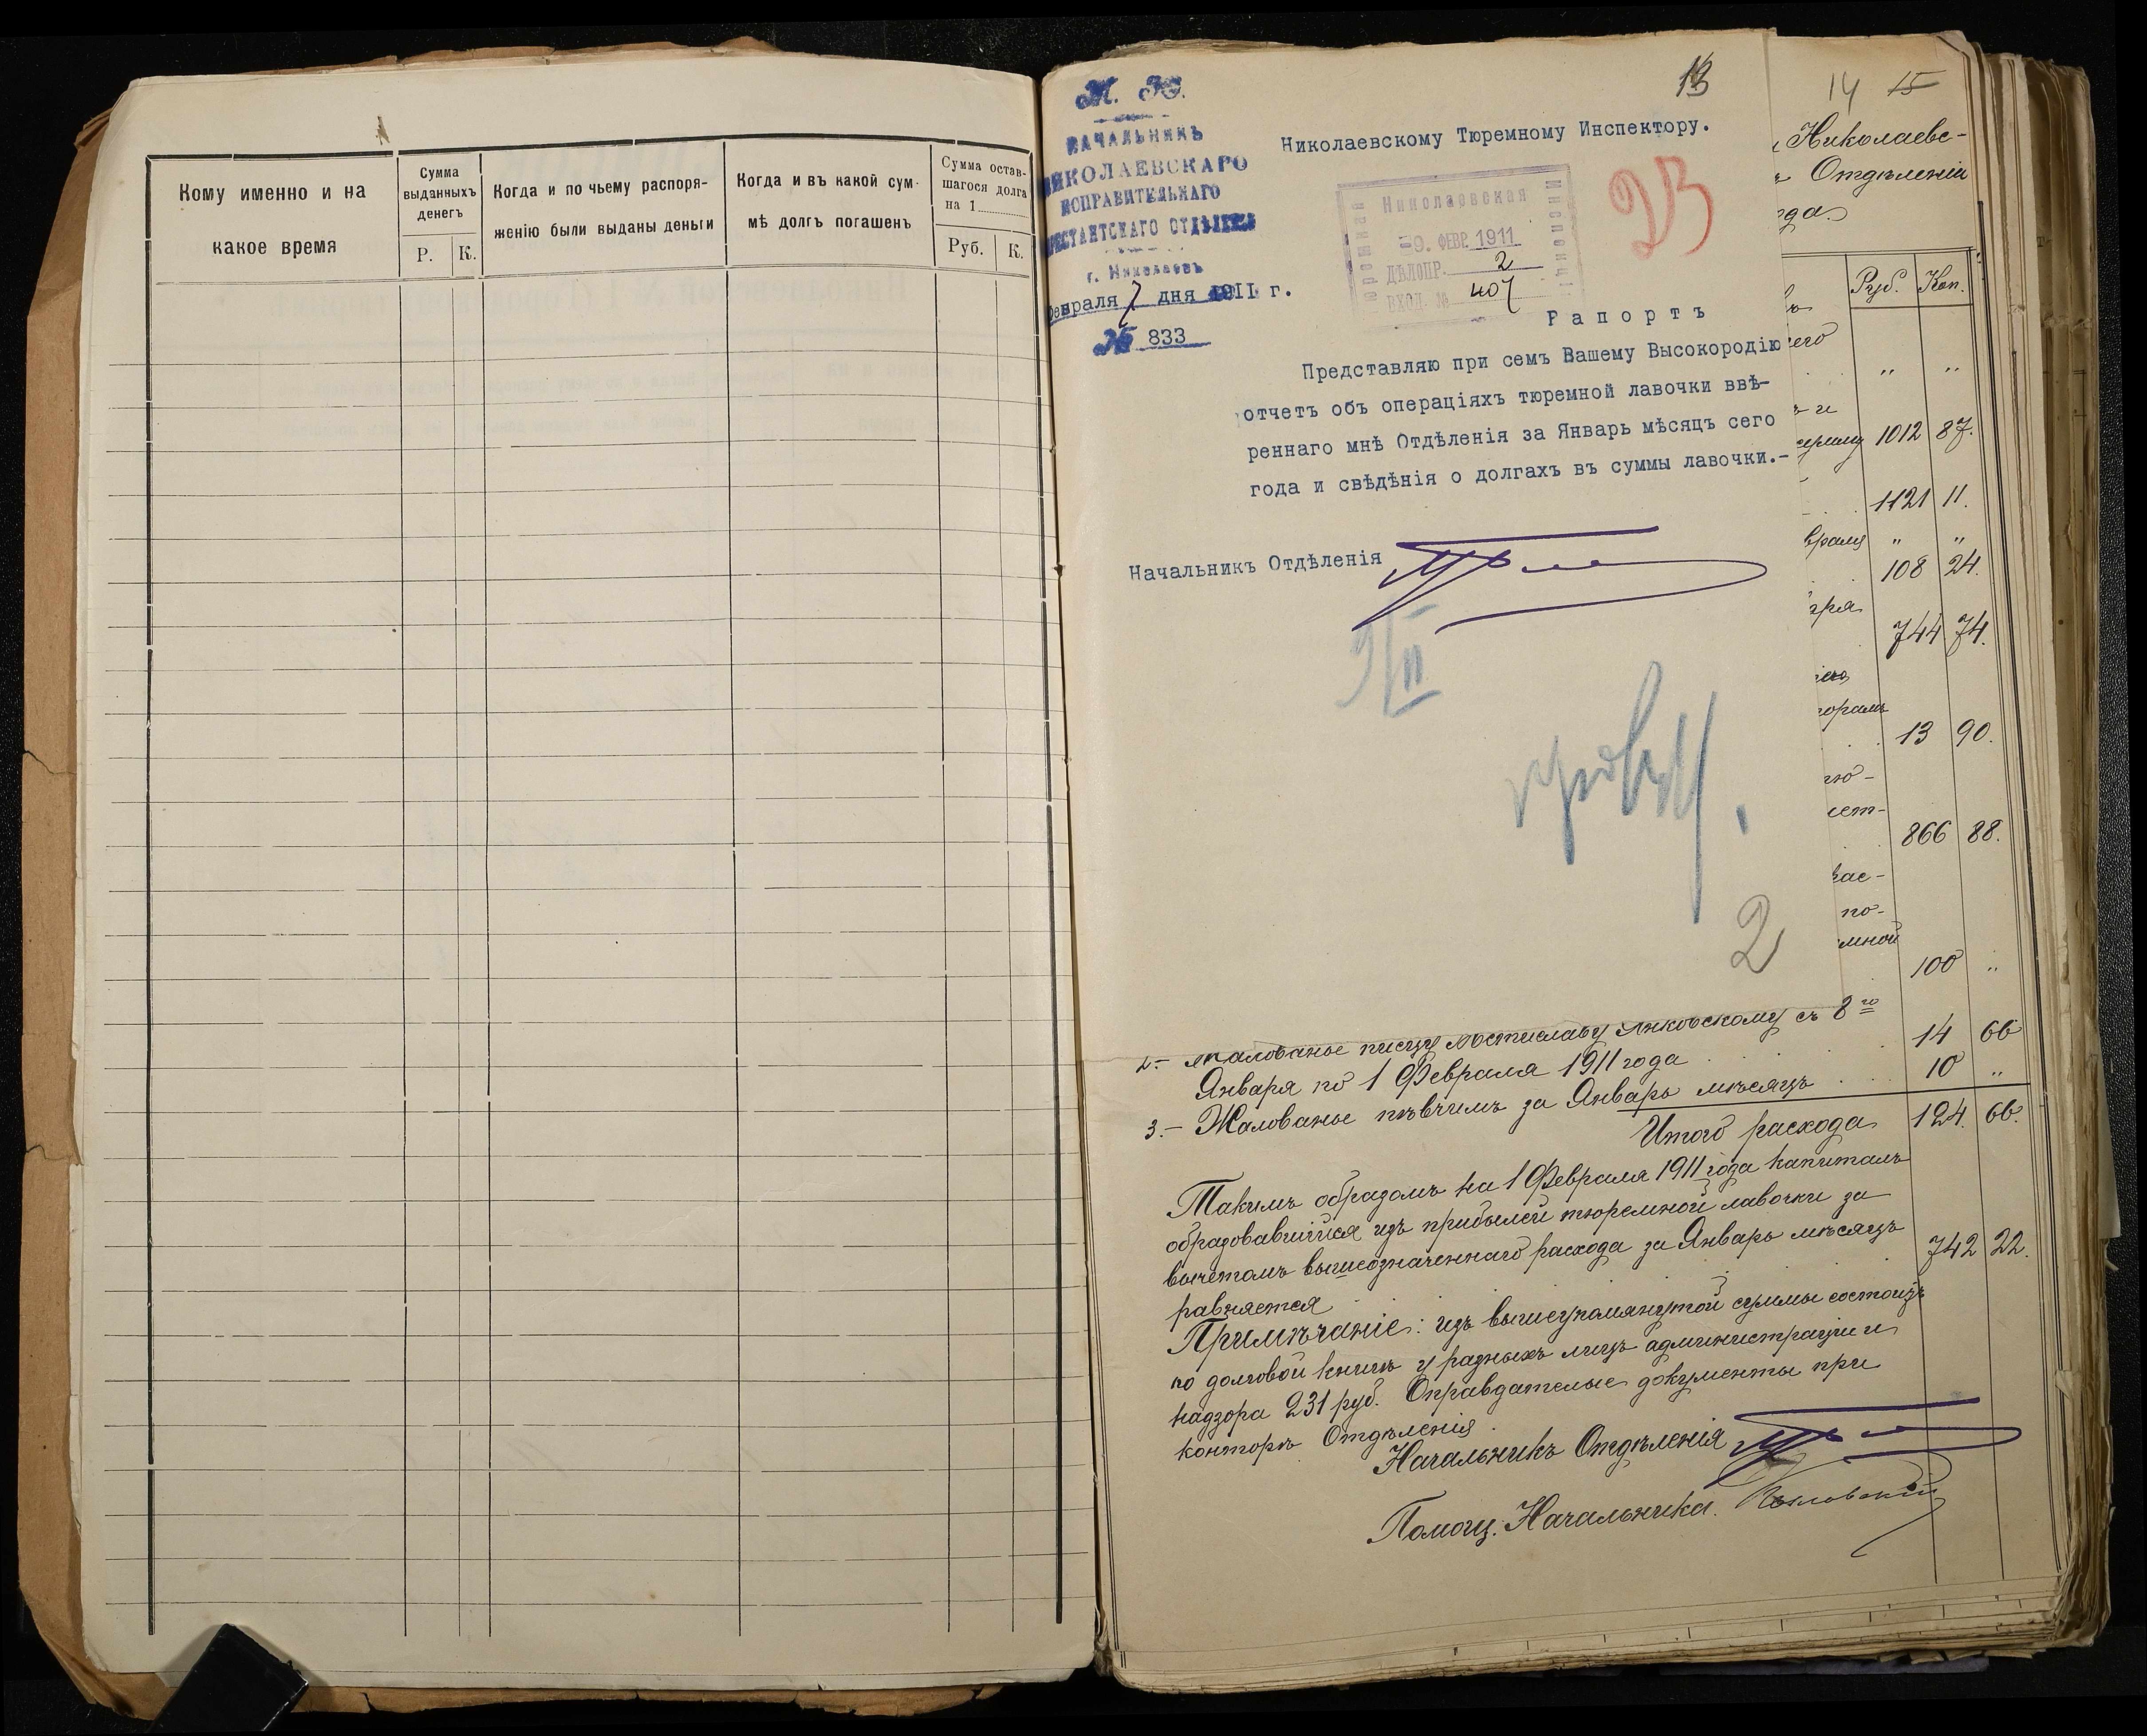 Кому именно и на
какое время
Сумма
выданныхъ
денегъ
Р. К.
Когда и по чьему распоря-
женію были выданы деньги
Когда и въ какой сум-
мѣ долгъ погашенъ
Сумма остав-
шагося долга
на 1
Руб. К.
М. Ю.
НАЧАЛЬНИКЪ
НИКОЛАЕВСКАГО
ИСПРАВИТЕЛЬНАГО
АРЕСТАНТСКАГО ОТДѢЛЕНІЯ
г. Николаевъ
Февраля 7 дня 1911 г.
№ 833
13
Николаевскому Тюремному Инспектору.
Николаевская
9. ФЕВР 1911
ДѢЛОПР. 2
ВХОД. № 407
Рапортъ
Представляю при семъ Вашему Высокородію
отчетъ объ операціяхъ тюремной лавочки ввѣ-
реннаго мнѣ Отдѣленія за Январь мѣсяцъ сего
года и свѣдѣнія о долгахъ въ суммы лавочки.-
Начальникъ Отдѣленія
9/II
2
14 15
Николаевс-
Отдѣленіи
года
Руб. Коп.
" "
1012 87.
1121 11.
враля " "
108 24.
744 74.
13 90.
866 88.
мной
100 "
2.- Жалованье писцу Мстиславу Янковскому съ 8го
Января по 1 Февраля 1911 года 14 66
3.- Жалованье пѣвчимъ за Январь мѣсяцъ 10 "
Итого расхода 124. 66.
Такимъ образомъ на 1 Февраля 1911 года капиталъ
образовавшійся изъ прибылей тюремной лавочки за
вычетомъ вышеозначеннаго расхода за Январь мѣсяцъ
равняется 742 22.
Примѣчаніе: изъ вышеупомянутой суммы состоитъ
по долговой книгѣ у разныхъ лицъ администраціи и
надзора 231 руб. Оправдателые документы при
конторѣ Отдѣленія
Начальникъ Отдѣленія
Помощ. Начальника.